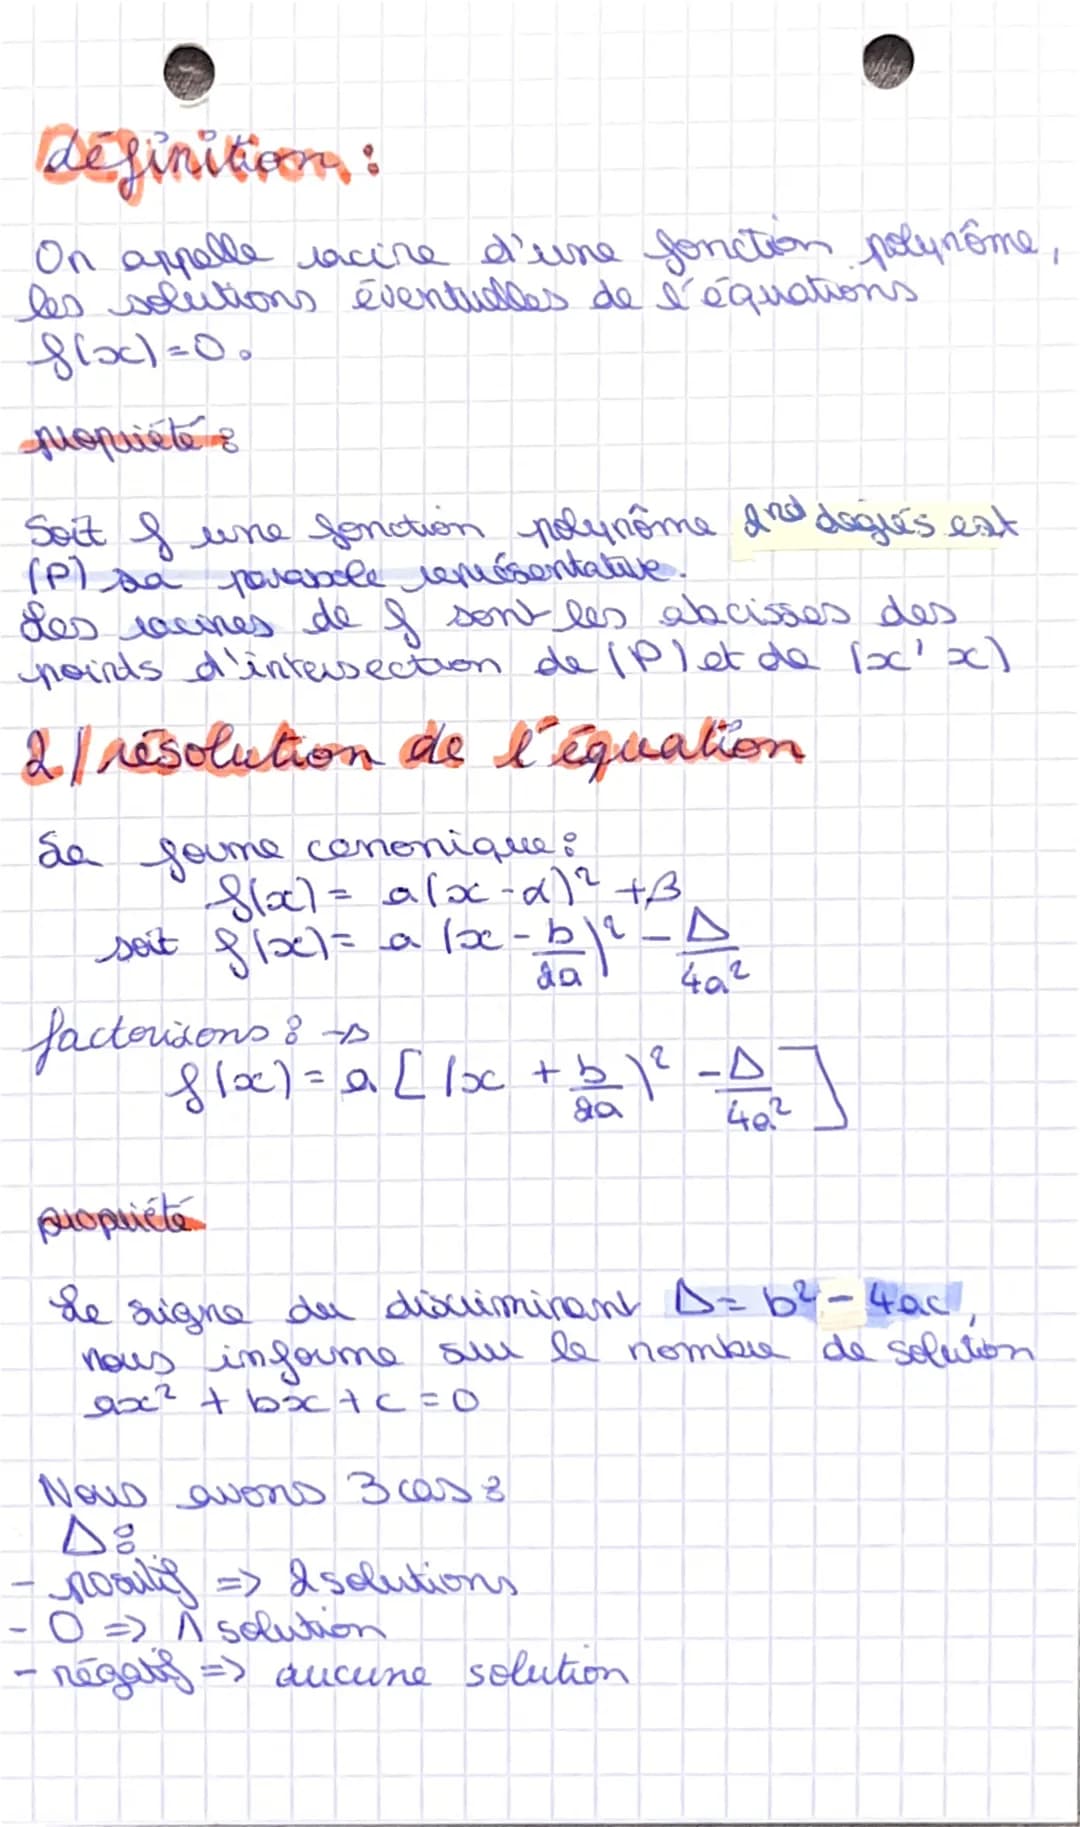 définition :
On appelle racine d'une fonction polynôme,
les solutions éventuelles de l'équations
f(x)=0.
propriété :
Soit f une fonction polynôme 2nd degrés est
(P) sa parabole représentative.
Les racines de f sont les abcisses des
points d'intersection de (P) et de (x'x)
2/ résolution de l'équation
La forme canonique :
f(x) = a(x-α)² + β
soit f(x) = a (x - b/2a)² - Δ/4a²
factorisons : →
f(x) = a [ (x + b/2a)² - Δ/4a² ]
propriété
Le signe du discriminant Δ= b² - 4ac,
nous informe sur le nombre de solution
ax² + bx + c = 0
Nous avons 3 cas :
Δ :
- positif => 2 solutions
- 0 => 1 solution
- négatif => aucune solution